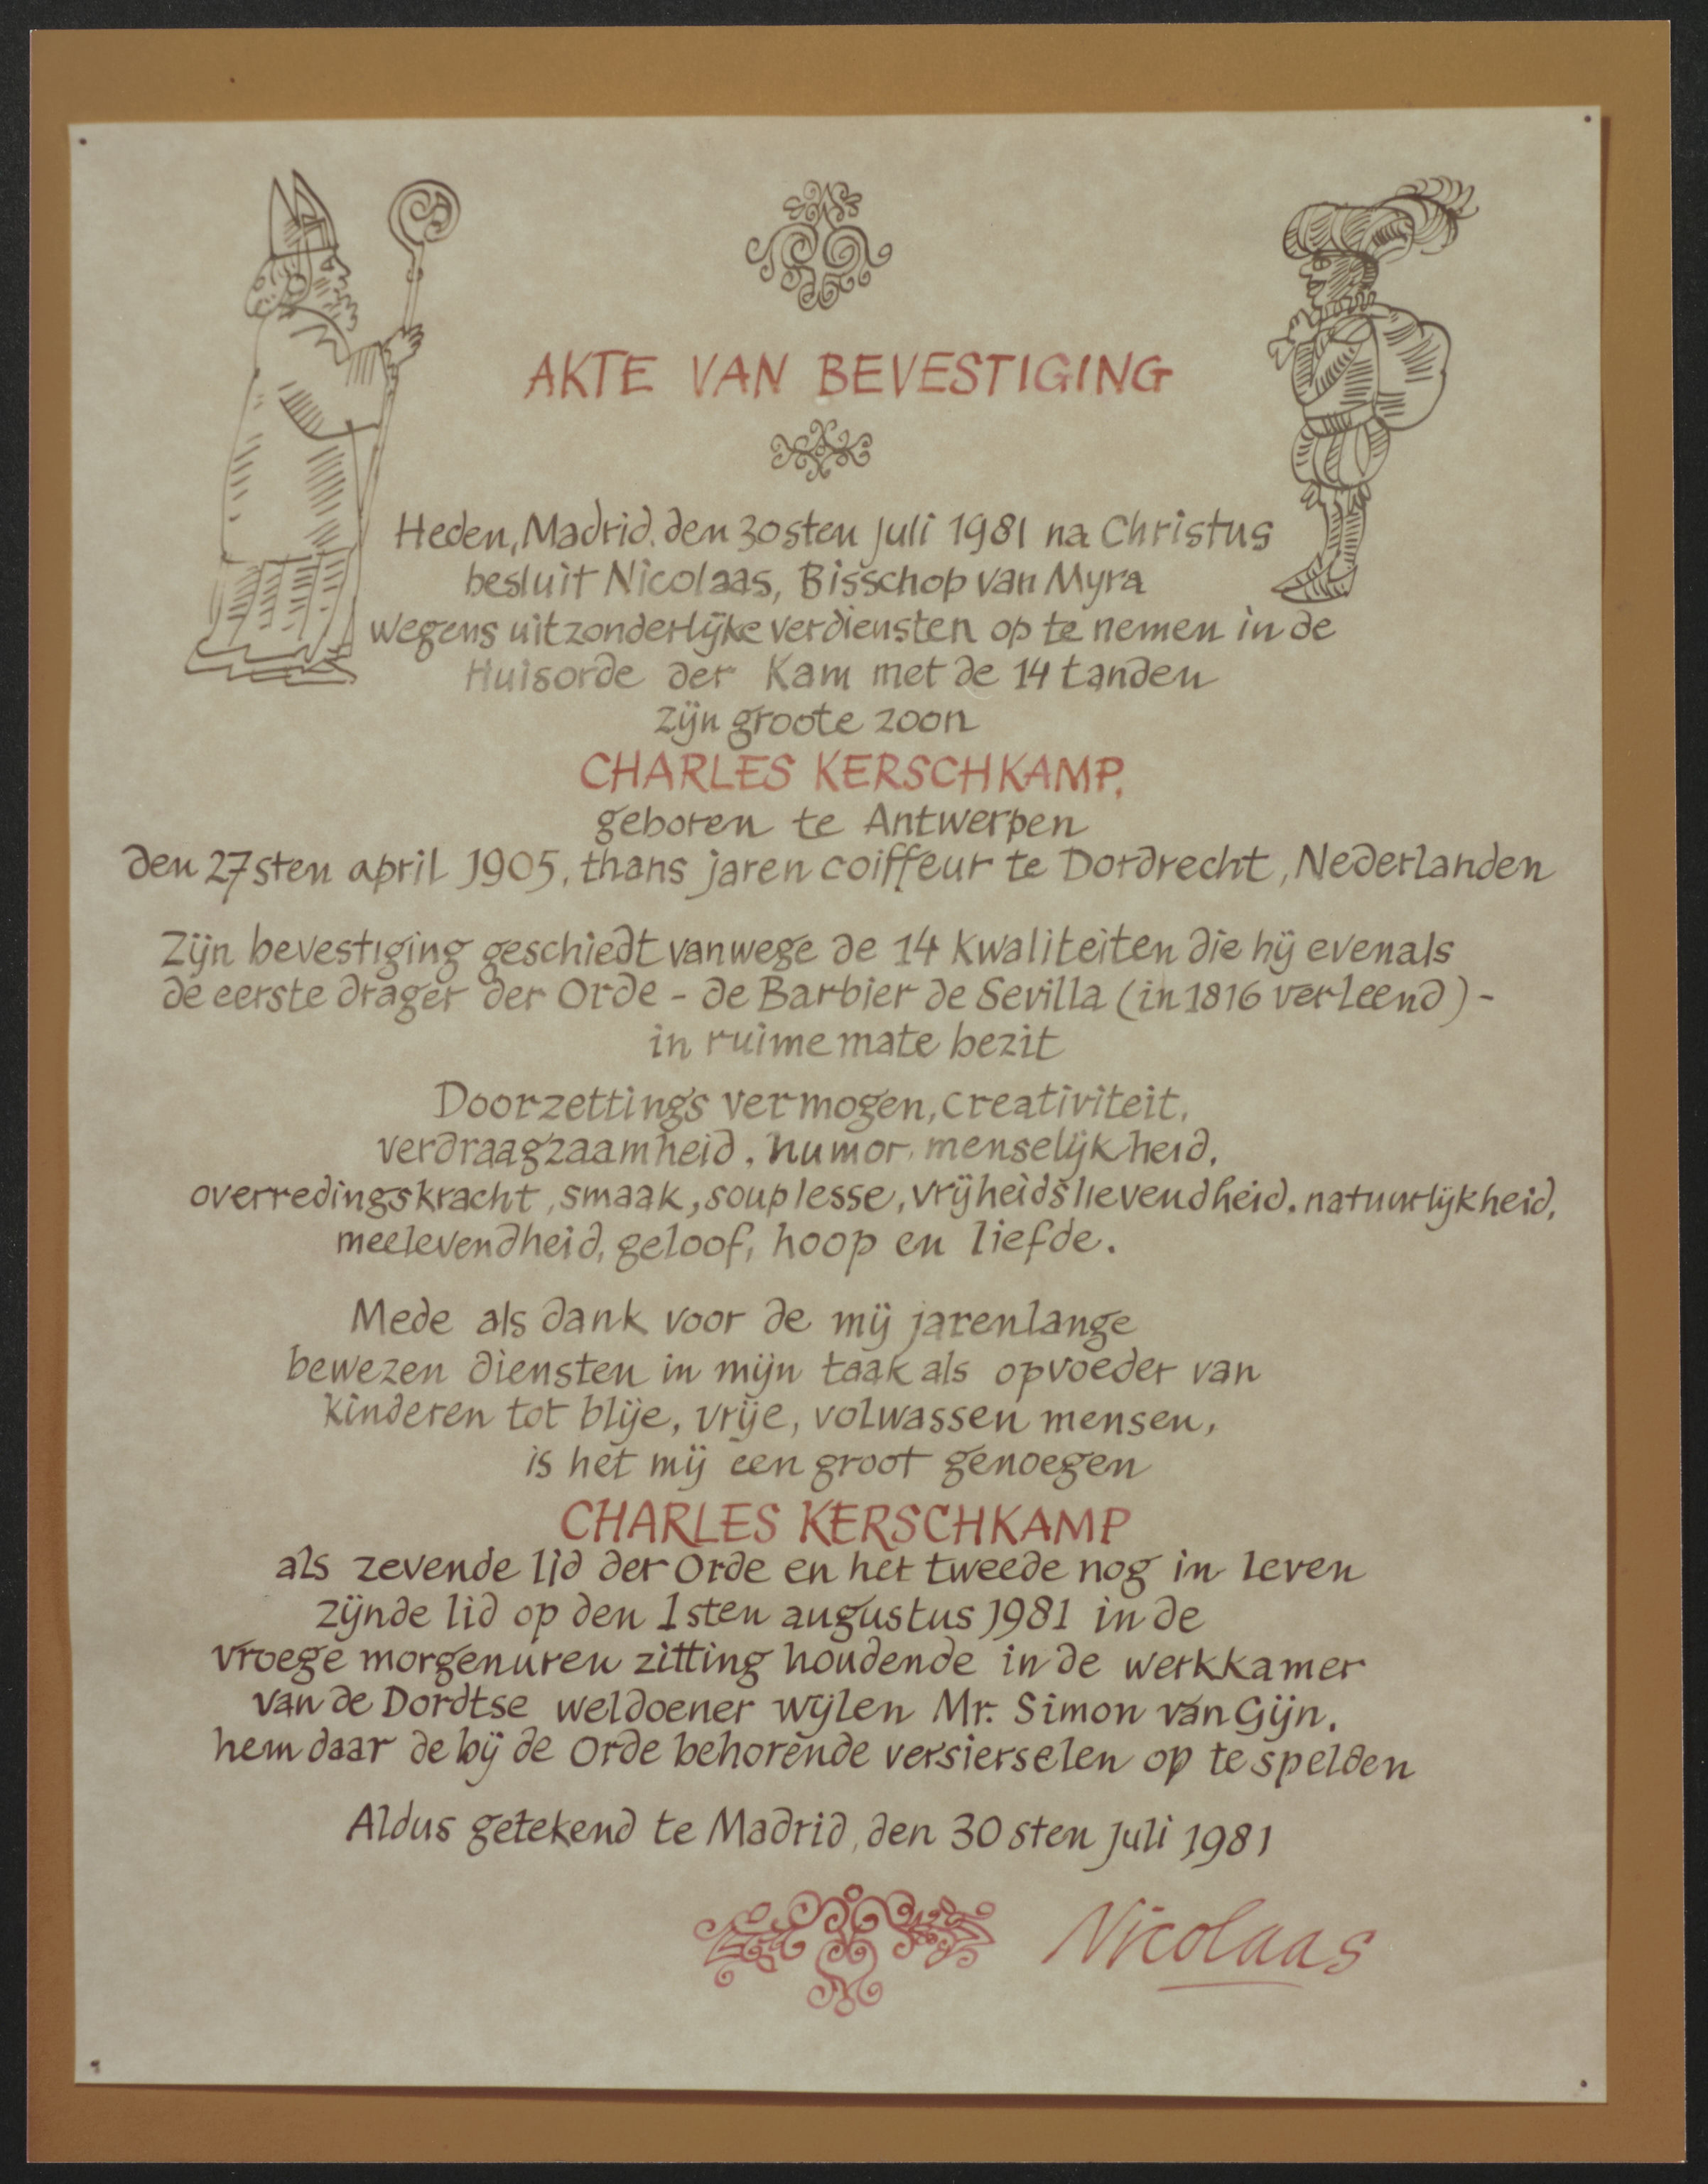 AKTE VAN BEVESTIGING
Heden, Madrid, den 30sten Juli 1981 na Christus
besluit Nicolaas, Bisschop van Myra
wegens uitzonderlijke verdiensten op te nemen in de
Huisorde der Kam met de 14 tanden
zijn groote zoon
CHARLES KERSCHKAMP,
geboren te Antwerpen
den 27sten april 1905, thans jaren coiffeur te Dordrecht, Nederlanden
Zijn bevestiging geschiedt vanwege de 14 kwaliteiten die hij evenals
de eerste drager der Orde - de Barbier de Sevilla (in 1816 verleend) -
in ruime mate bezit
Doorzettings vermogen, creativiteit,
verdraagzaamheid, humor, menselijkheid,
overredingskracht, smaak, souplesse, vrijheidslievendheid, natuurlijkheid,
meelevendheid, geloof, hoop en liefde.
Mede als dank voor de mij jarenlange
bewezen diensten in mijn taak als opvoeder van
kinderen tot blije, vrije, volwassen mensen,
is het mij een groot genoegen
CHARLES KERSCHKAMP
als zevende lid der Orde en het tweede nog in leven
zijnde lid op den 1sten augustus 1981 in de
vroege morgenuren zitting houdende in de werkkamer
van de Dordtse weldoener wijlen Mr. Simon van Gijn,
hem daar de bij de Orde behorende versierselen op te spelden
Aldus getekend te Madrid, den 30sten Juli 1981
Nicolaas